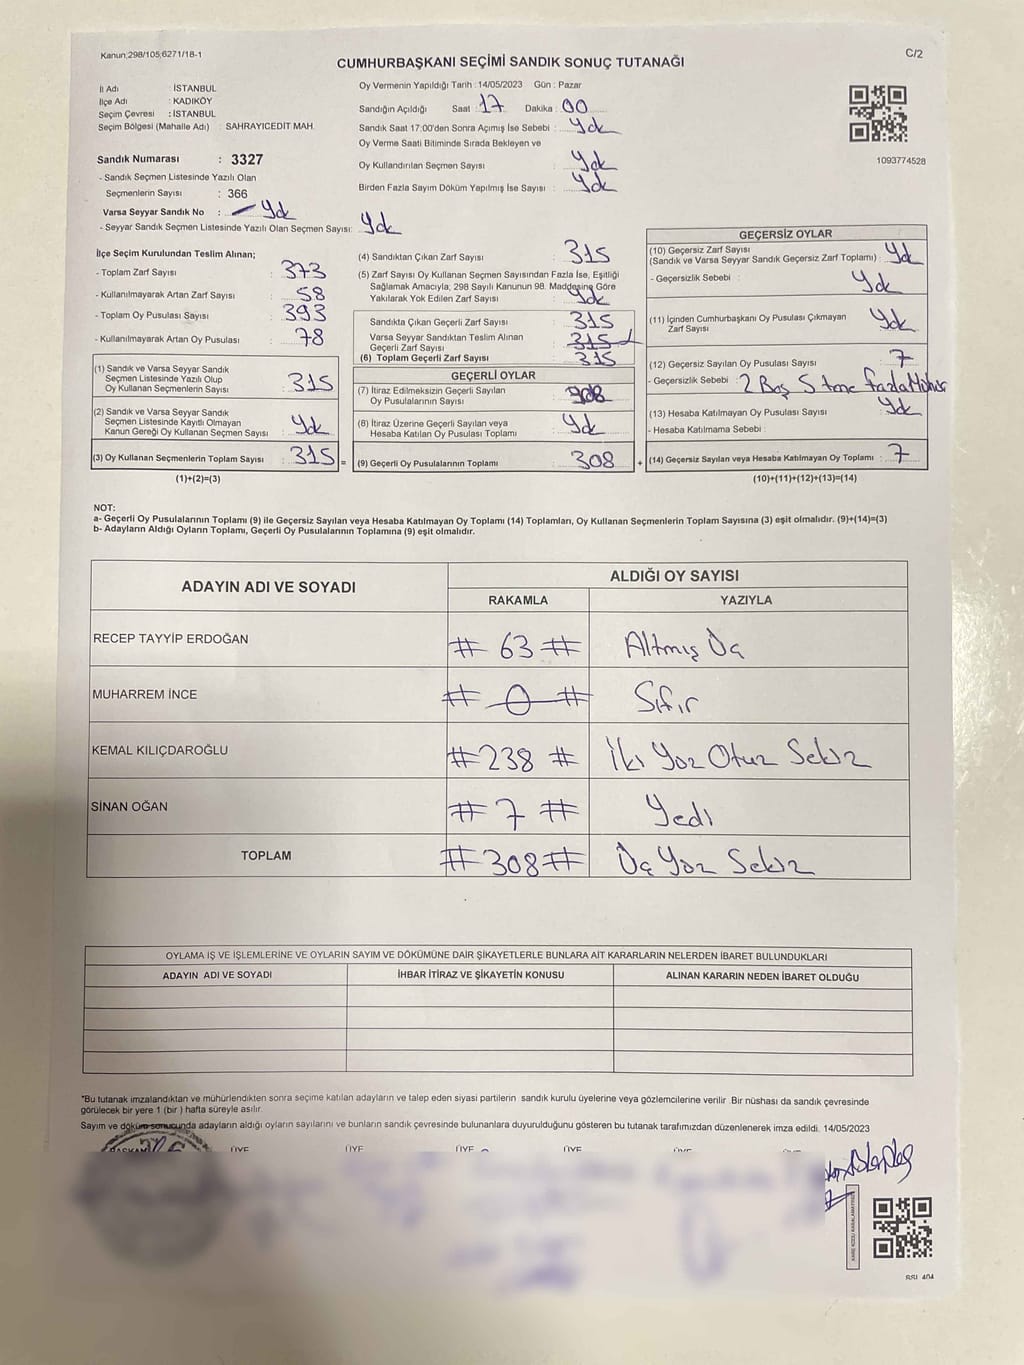 Kanun;298/105;6271/18-1
C/2
CUMHURBAŞKANI SEÇİMİ SANDIK SONUÇ TUTANAĞI
İl Adı İSTANBUL
İlçe Adı : KADIKÖY
Seçim Çevresi : İSTANBUL
Seçim Bölgesi (Mahalle Adı) : SAHRAYICEDİT MAH.
Sandık Numarası : 3327
- Sandık Seçmen Listesinde Yazılı Olan
Seçmenlerin Sayısı : 366
Varsa Seyyar Sandık No : Yok
- Seyyar Sandık Seçmen Listesinde Yazılı Olan Seçmen Sayısı: Yok
Oy Vermenin Yapıldığı Tarih : 14/05/2023 Gün : Pazar
Sandığın Açıldığı Saat : 17 Dakika : 00
Sandık Saat 17:00'den Sonra Açımış İse Sebebi : Yok
Oy Verme Saati Bitiminde Sırada Bekleyen ve
Oy Kullandırılan Seçmen Sayısı : Yok
Birden Fazla Sayım Döküm Yapılmış İse Sayısı : Yok
1093774528
İlçe Seçim Kurulundan Teslim Alınan;
- Toplam Zarf Sayısı : 373
- Kullanılmayarak Artan Zarf Sayısı : 58
- Toplam Oy Pusulası Sayısı : 393
- Kullanılmayarak Artan Oy Pusulası : 78
(1) Sandık ve Varsa Seyyar Sandık
Seçmen Listesinde Yazılı Olup
Oy Kullanan Seçmenlerin Sayısı : 315
(2) Sandık ve Varsa Seyyar Sandık
Seçmen Listesinde Kayıtlı Olmayan
Kanun Gereği Oy Kullanan Seçmen Sayısı : Yok
(3) Oy Kullanan Seçmenlerin Toplam Sayısı : 315 =
(1)+(2)=(3)
(4) Sandıktan Çıkan Zarf Sayısı : 315
(5) Zarf Sayısı Oy Kullanan Seçmen Sayısından Fazla İse, Eşitliği
Sağlamak Amacıyla, 298 Sayılı Kanunun 98. Maddesine Göre
Yakılarak Yok Edilen Zarf Sayısı : Yok
Sandıkta Çıkan Geçerli Zarf Sayısı : 315
Varsa Seyyar Sandıktan Teslim Alınan
Geçerli Zarf Sayısı : 315
(6) Toplam Geçerli Zarf Sayısı : 315
GEÇERLİ OYLAR
(7) İtiraz Edilmeksizin Geçerli Sayılan
Oy Pusulalarının Sayısı : 308
(8) İtiraz Üzerine Geçerli Sayılan veya
Hesaba Katılan Oy Pusulası Toplamı : Yok
(9) Geçerli Oy Pusulalarının Toplamı : 308 +
GEÇERSİZ OYLAR
(10) Geçersiz Zarf Sayısı
(Sandık ve Varsa Seyyar Sandık Geçersiz Zarf Toplamı) : Yok
- Geçersizlik Sebebi : Yok
(11) İçinden Cumhurbaşkanı Oy Pusulası Çıkmayan
Zarf Sayısı : Yok
(12) Geçersiz Sayılan Oy Pusulası Sayısı : 7
- Geçersizlik Sebebi : 2 Boş 5 tane fazla Mühür
(13) Hesaba Katılmayan Oy Pusulası Sayısı : Yok
- Hesaba Katılmama Sebebi :
(14) Geçersiz Sayılan veya Hesaba Katılmayan Oy Toplamı : 7
(10)+(11)+(12)+(13)=(14)
NOT:
a- Geçerli Oy Pusulalarının Toplamı (9) ile Geçersiz Sayılan veya Hesaba Katılmayan Oy Toplamı (14) Toplamları, Oy Kullanan Seçmenlerin Toplam Sayısına (3) eşit olmalıdır. (9)+(14)=(3)
b- Adayların Aldığı Oyların Toplamı, Geçerli Oy Pusulalarının Toplamına (9) eşit olmalıdır.
ADAYIN ADI VE SOYADI
ALDIĞI OY SAYISI
RAKAMLA YAZIYLA
RECEP TAYYİP ERDOĞAN # 63 # Altmış Üç
MUHARREM İNCE # 0 # Sıfır
KEMAL KILIÇDAROĞLU #238 # İki Yüz Otuz Sekiz
SİNAN OĞAN # 7 # Yedi
TOPLAM #308# Üç Yüz Sekiz
OYLAMA İŞ VE İŞLEMLERİNE VE OYLARIN SAYIM VE DÖKÜMÜNE DAİR ŞİKAYETLERLE BUNLARA AİT KARARLARIN NELERDEN İBARET BULUNDUKLARI
ADAYIN ADI VE SOYADI İHBAR İTİRAZ VE ŞİKAYETİN KONUSU ALINAN KARARIN NEDEN İBARET OLDUĞU
*Bu tutanak imzalandıktan ve mühürlendikten sonra seçime katılan adayların ve talep eden siyasi partilerin sandık kurulu üyelerine veya gözlemcilerine verilir. Bir nüshası da sandık çevresinde
görülecek bir yere 1 (bir ) hafta süreyle asılır.
Sayım ve döküm sonucunda adayların aldığı oyların sayılarını ve bunların sandık çevresinde bulunanlara duyurulduğunu gösteren bu tutanak tarafımızdan düzenlenerek imza edildi. 14/05/2023
BAŞKAN ÜYE ÜYE ÜYE ÜYE